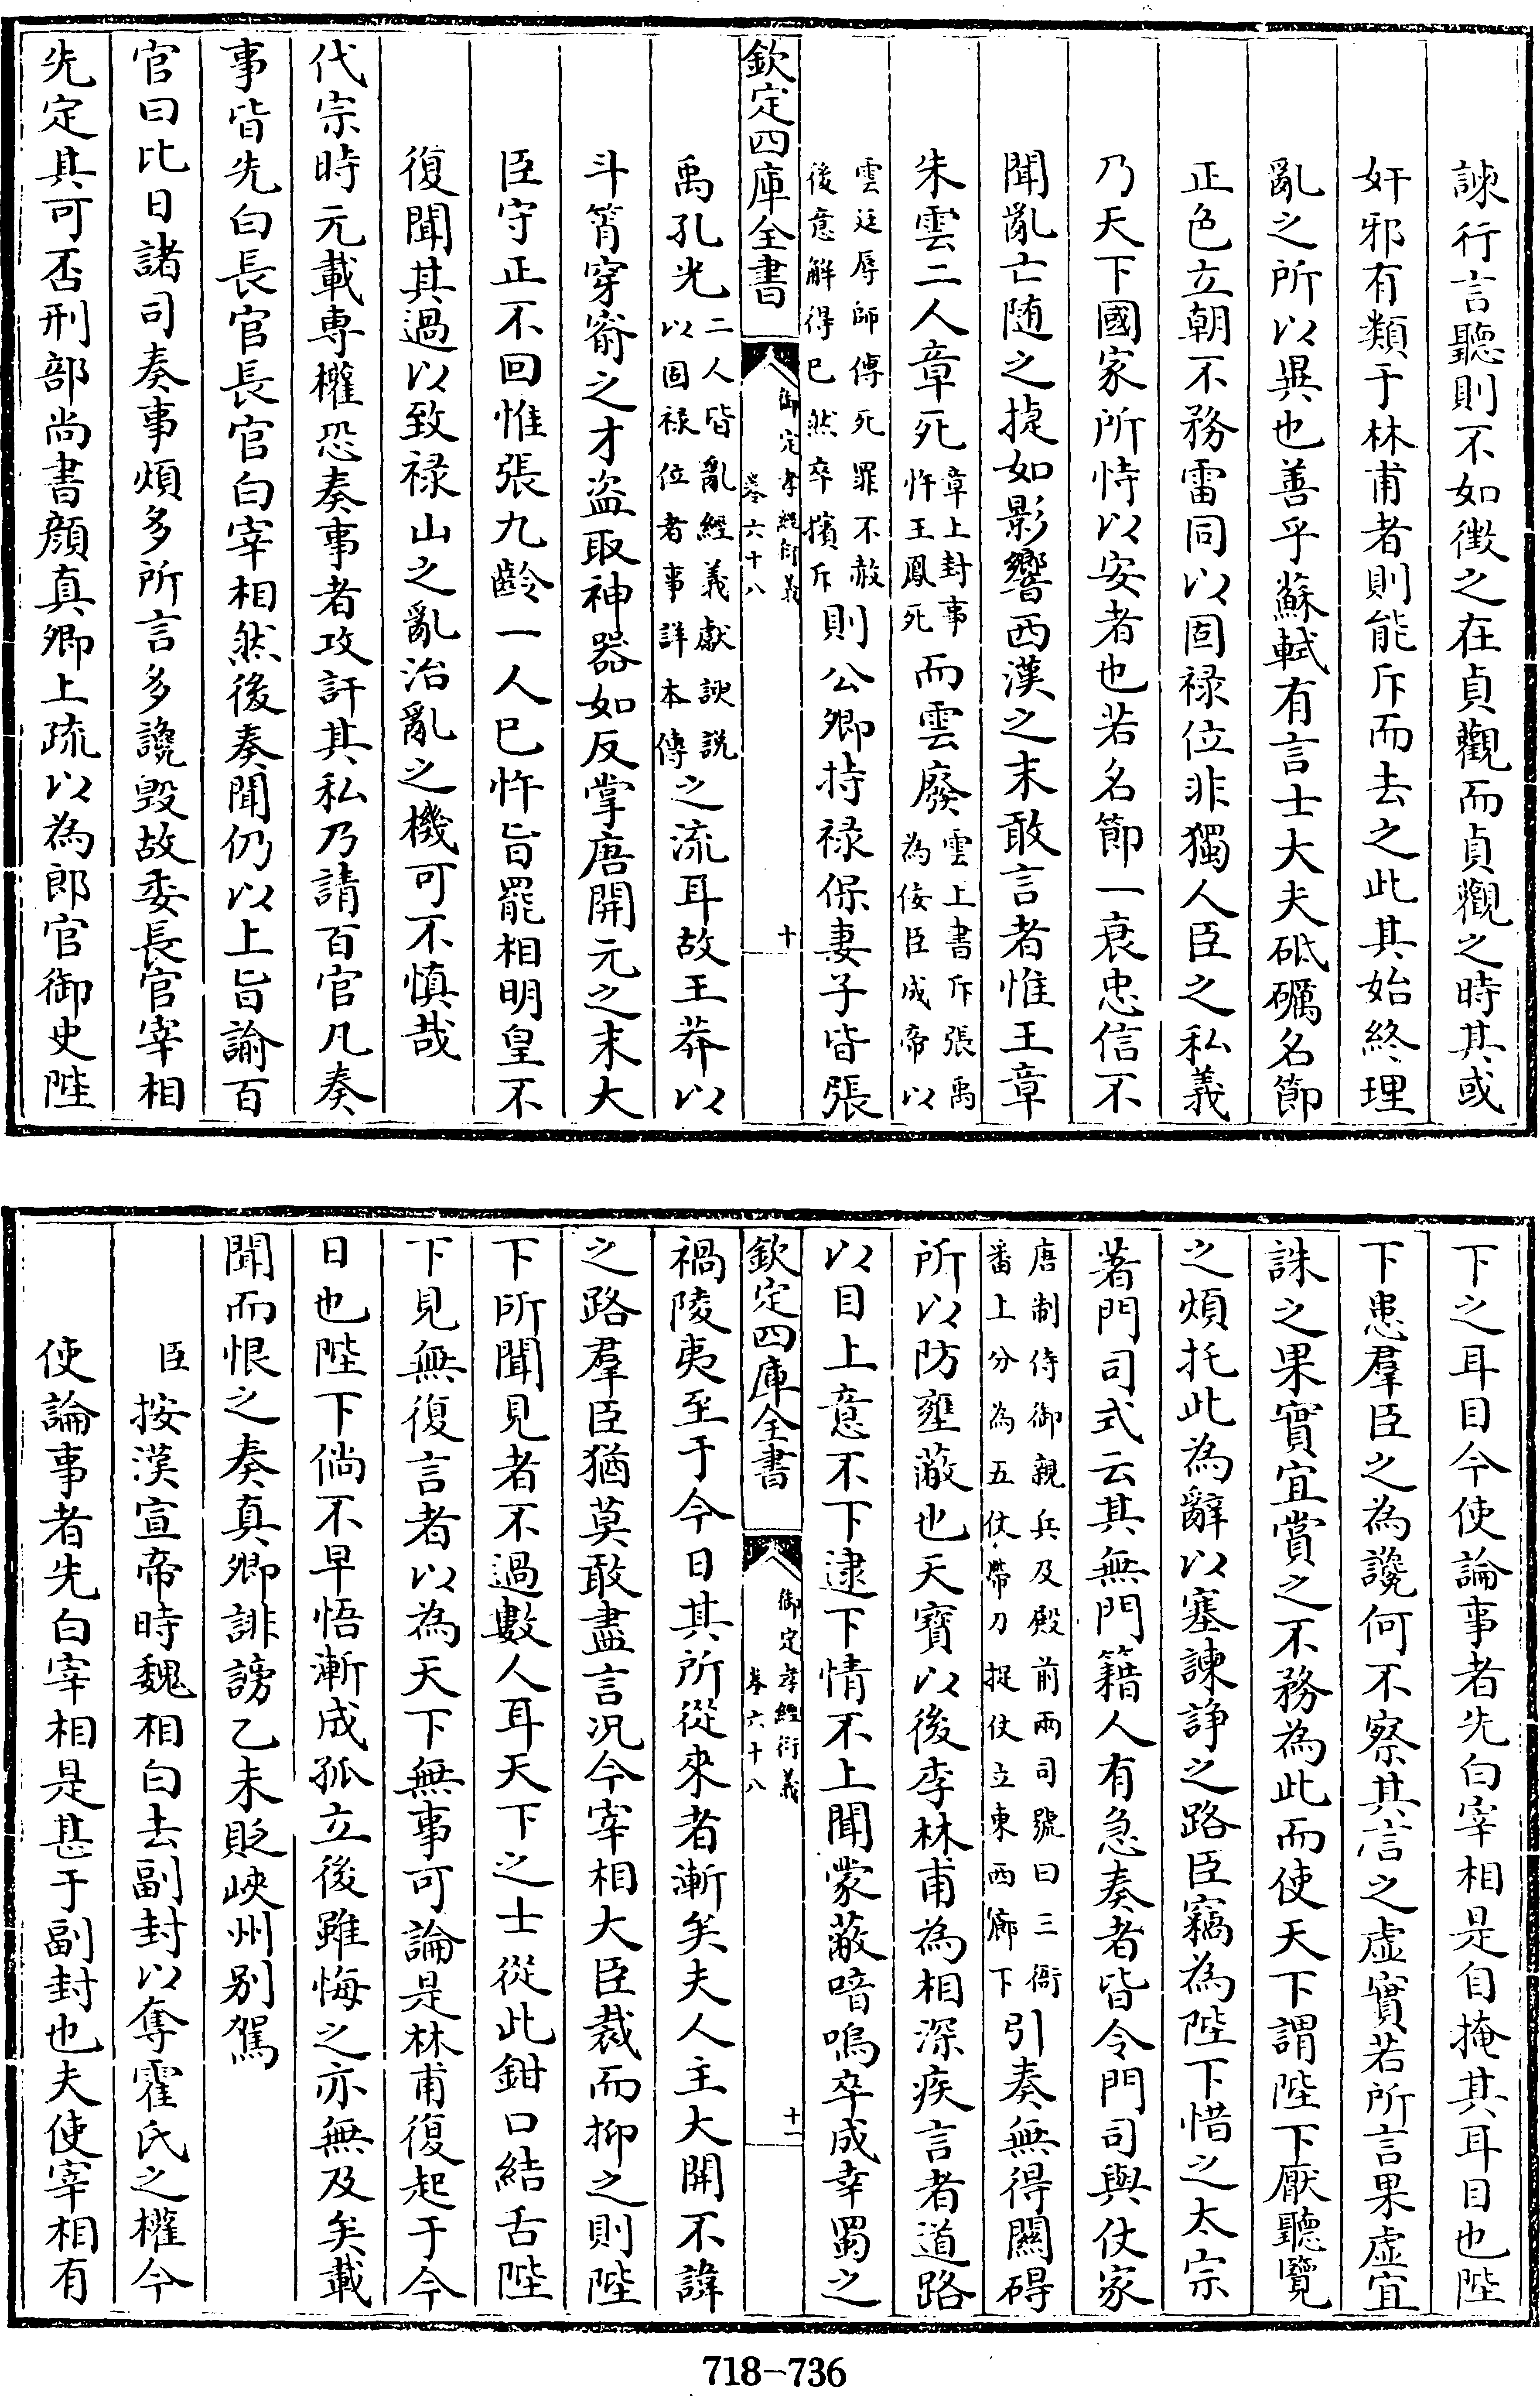 諫行言聽則不如徴之在貞觀而貞觀之時其或
奸邪有類于林甫者則能斥而去之此其始終理
亂之所以異也善乎蘇軾有言士大夫砥礪名節
正色立朝不務雷同以固祿位非獨人臣之私義
乃天下國家所恃以安者也若名節一衰忠信不
聞亂亡随之捷如影響西漢之末敢言者惟王章
朱雲二人章死章上封事忤王鳳死而雲廢雲上書斥張禹為佞臣成帝以
雲廷辱師傅死罪不赦後意解得已然卒擯斥則公卿持祿保妻子皆張
欽定四庫全書 御定孝經衍義 卷六十八 十
禹孔光二人皆亂經義獻諛説以固祿位者事詳本傳之流耳故王莽以
斗筲穿窬之才盜取神器如反掌唐開元之末大
臣守正不回惟張九齡一人已忤旨罷相明皇不
復聞其過以致祿山之亂治亂之機可不慎哉
代宗時元載専權恐奏事者攻訐其私乃請百官凡奏
事皆先白長官長官白宰相然後奏聞仍以上旨諭百
官曰比日諸司奏事煩多所言多讒毀故委長官宰相
先定其可否刑部尚書顔真卿上疏以為郎官御史陛
下之耳目今使論事者先白宰相是自掩其耳目也陛
下患羣臣之為讒何不察其言之虛實若所言果虛宜
誅之果實宜賞之不務為此而使天下謂陛下厭聽覽
之煩托此為辭以塞諫諍之路臣竊為陛下惜之太宗
著門司式云其無門籍人有急奏者皆令門司與仗家
唐制侍御親兵及殿前兩司號曰三衙番上分為五仗帶刀捉仗立東西廊下引奏無得關碍
所以防壅蔽也天寶以後李林甫為相深疾言者道路
以目上意不下逮下情不上聞蒙蔽喑嗚卒成幸蜀之
欽定四庫全書 御定孝經衍義 卷六十八 十一
禍陵夷至于今日其所從來者漸矣夫人主大開不諱
之路羣臣猶莫敢盡言况今宰相大臣裁而抑之則陛
下所聞見者不過數人耳天下之士從此鉗口結舌陛
下見無復言者以為天下無事可論是林甫復起于今
日也陛下倘不早悟漸成孤立後雖悔之亦無及矣載
聞而恨之奏真卿誹謗乙未貶峽州别駕
臣按漢宣帝時魏相白去副封以奪霍氏之權今
使論事者先白宰相是甚于副封也夫使宰相有
718-736